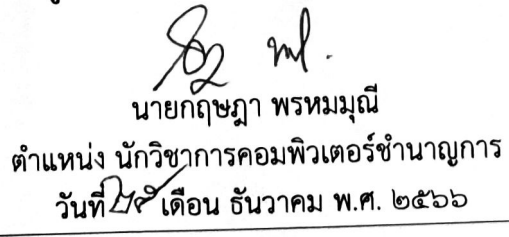 นายกฤษฎา พรหมมุณี
ตำแหน่ง นักวิชาการคอมพิวเตอร์ชำนาญการ
วันที่ ๒๕ เดือน ธันวาคม พ.ศ. ๒๕๖๖